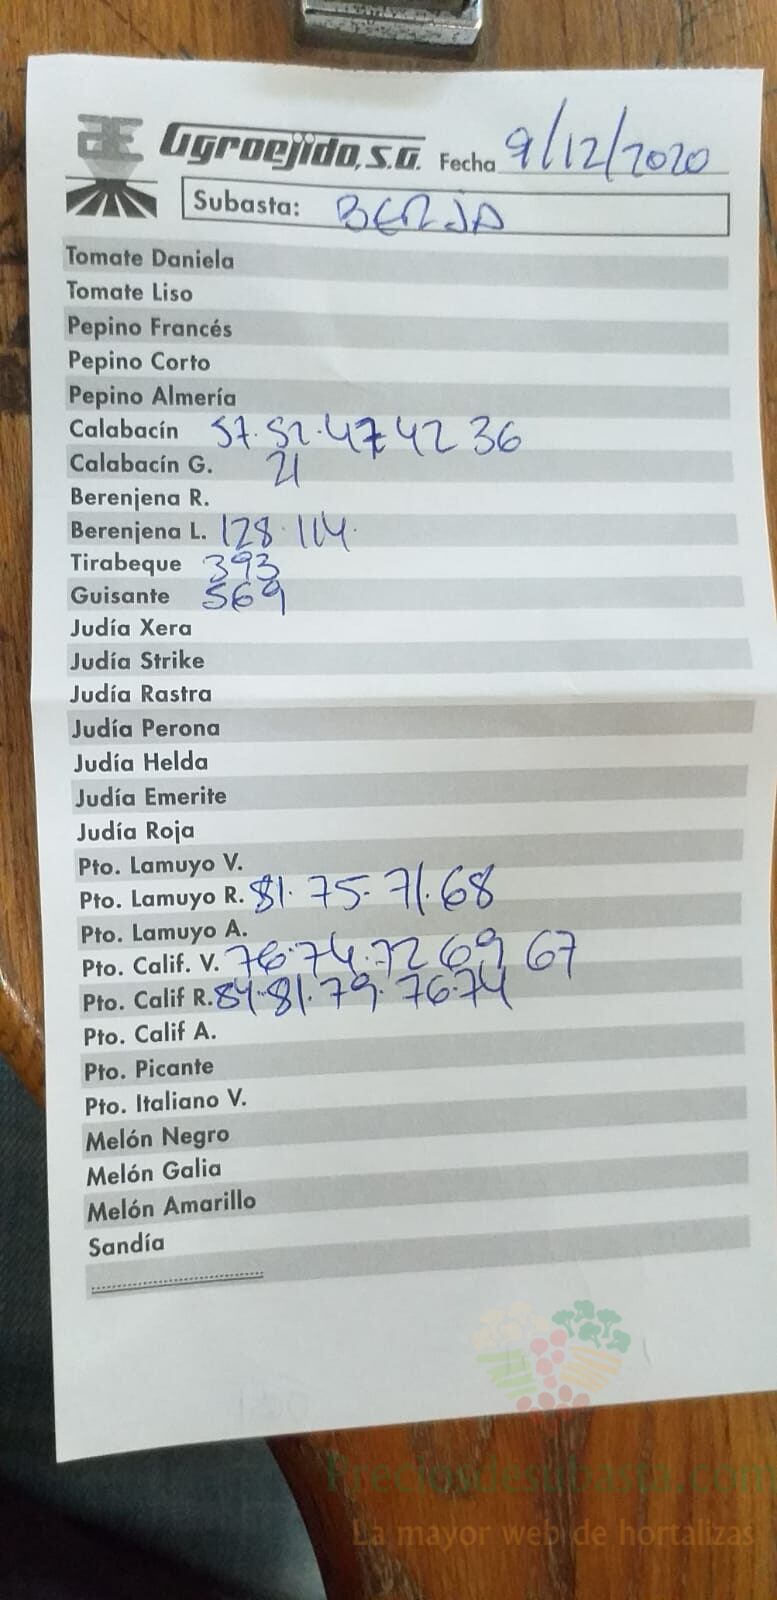 Agroejido, S.A. Fecha 9/12/2020
Subasta: BERJA
Tomate Daniela
Tomate Liso
Pepino Francés
Pepino Corto
Pepino Almería
Calabacín 57. 52. 47 42 36
Calabacín G. 21
Berenjena R.
Berenjena L. 128. 114.
Tirabeque 393
Guisante 569
Judía Xera
Judía Strike
Judía Rastra
Judía Perona
Judía Helda
Judía Emerite
Judía Roja
Pto. Lamuyo V.
Pto. Lamuyo R. 81. 75. 71. 68
Pto. Lamuyo A.
Pto. Calif. V. 76. 74. 72 69 67
Pto. Calif R. 84. 81. 79. 76. 74
Pto. Calif A.
Pto. Picante
Pto. Italiano V.
Melón Negro
Melón Galia
Melón Amarillo
Sandía
Preciosdesubasta.com
La mayor web de hortalizas